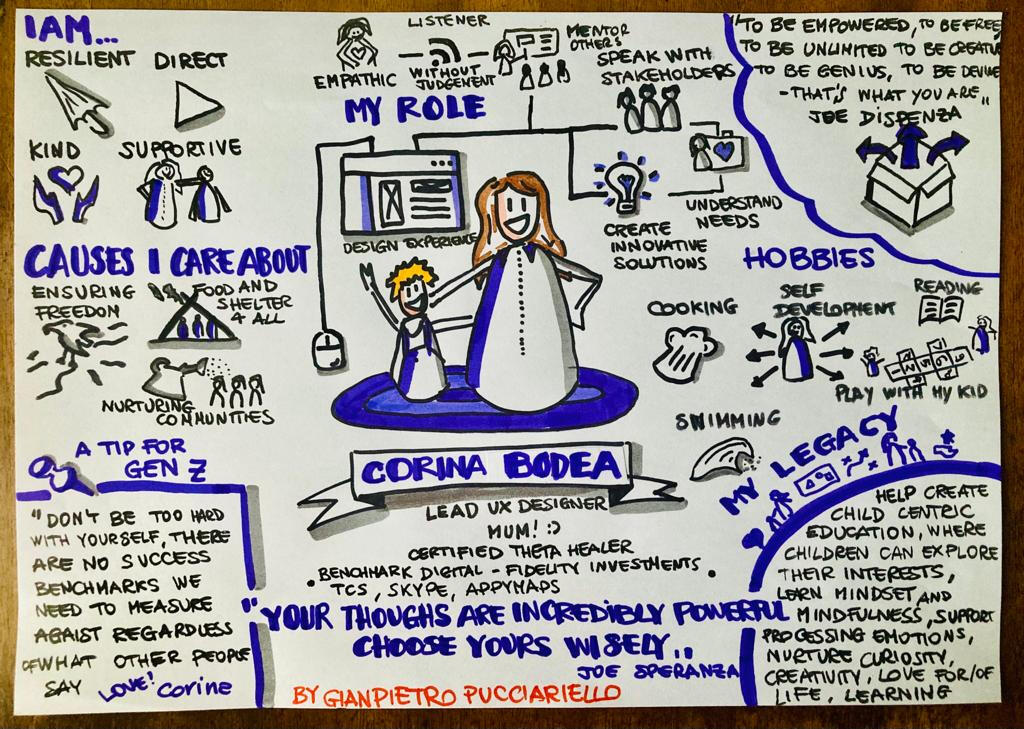 I AM...
RESILIENT DIRECT
KIND SUPPORTIVE
LISTENER
EMPATHIC
WITHOUT
JUDGEMENT
MENTOR
OTHERS
SPEAK WITH
STAKEHOLDERS
MY ROLE
DESIGN EXPERIENCE
CREATE
INNOVATIVE
SOLUTIONS
UNDERSTAND
NEEDS
"TO BE EMPOWERED, TO BE FREE
TO BE UNLIMITED TO BE CREATIVE
TO BE GENIUS, TO BE DEVINE
- THAT'S WHAT YOU ARE"
JOE DISPENZA
CAUSES I CARE ABOUT
ENSURING
FREEDOM
FOOD AND
SHELTER
4 ALL
NURTURING
COMMUNITIES
HOBBIES
COOKING
SELF
DEVELOPMENT
READING
PLAY WITH MY KID
SWIMMING
A TIP FOR
GEN Z
"DON'T BE TOO HARD
WITH YOURSELF, THERE
ARE NO SUCCESS
BENCHMARKS WE
NEED TO MEASURE
AGAIST REGARDLESS
OF WHAT OTHER PEOPLE
SAY LOVE! Corine
CORINA BODEA
LEAD UX DESIGNER
MUM! :)
CERTIFIED THETA HEALER
BENCHMARK DIGITAL - FIDELITY INVESTMENTS
• TCS, SKYPE, APPYMAPS •
"YOUR THOUGHS ARE INCREDIBLY POWERFUL
CHOOSE YOURS WISELY..
JOE SPERANZA
BY GIANPIETRO PUCCIARIELLO
MY LEGACY
HELP CREATE
CHILD CENTRIC
EDUCATION, WHERE
CHILDREN CAN EXPLORE
THEIR INTERESTS,
LEARN MINDSET AND
MINDFULNESS, SUPPORT
PROCESSING EMOTIONS,
NURTURE CURIOSITY,
CREATIVITY, LOVE FOR/OF
LIFE, LEARNING